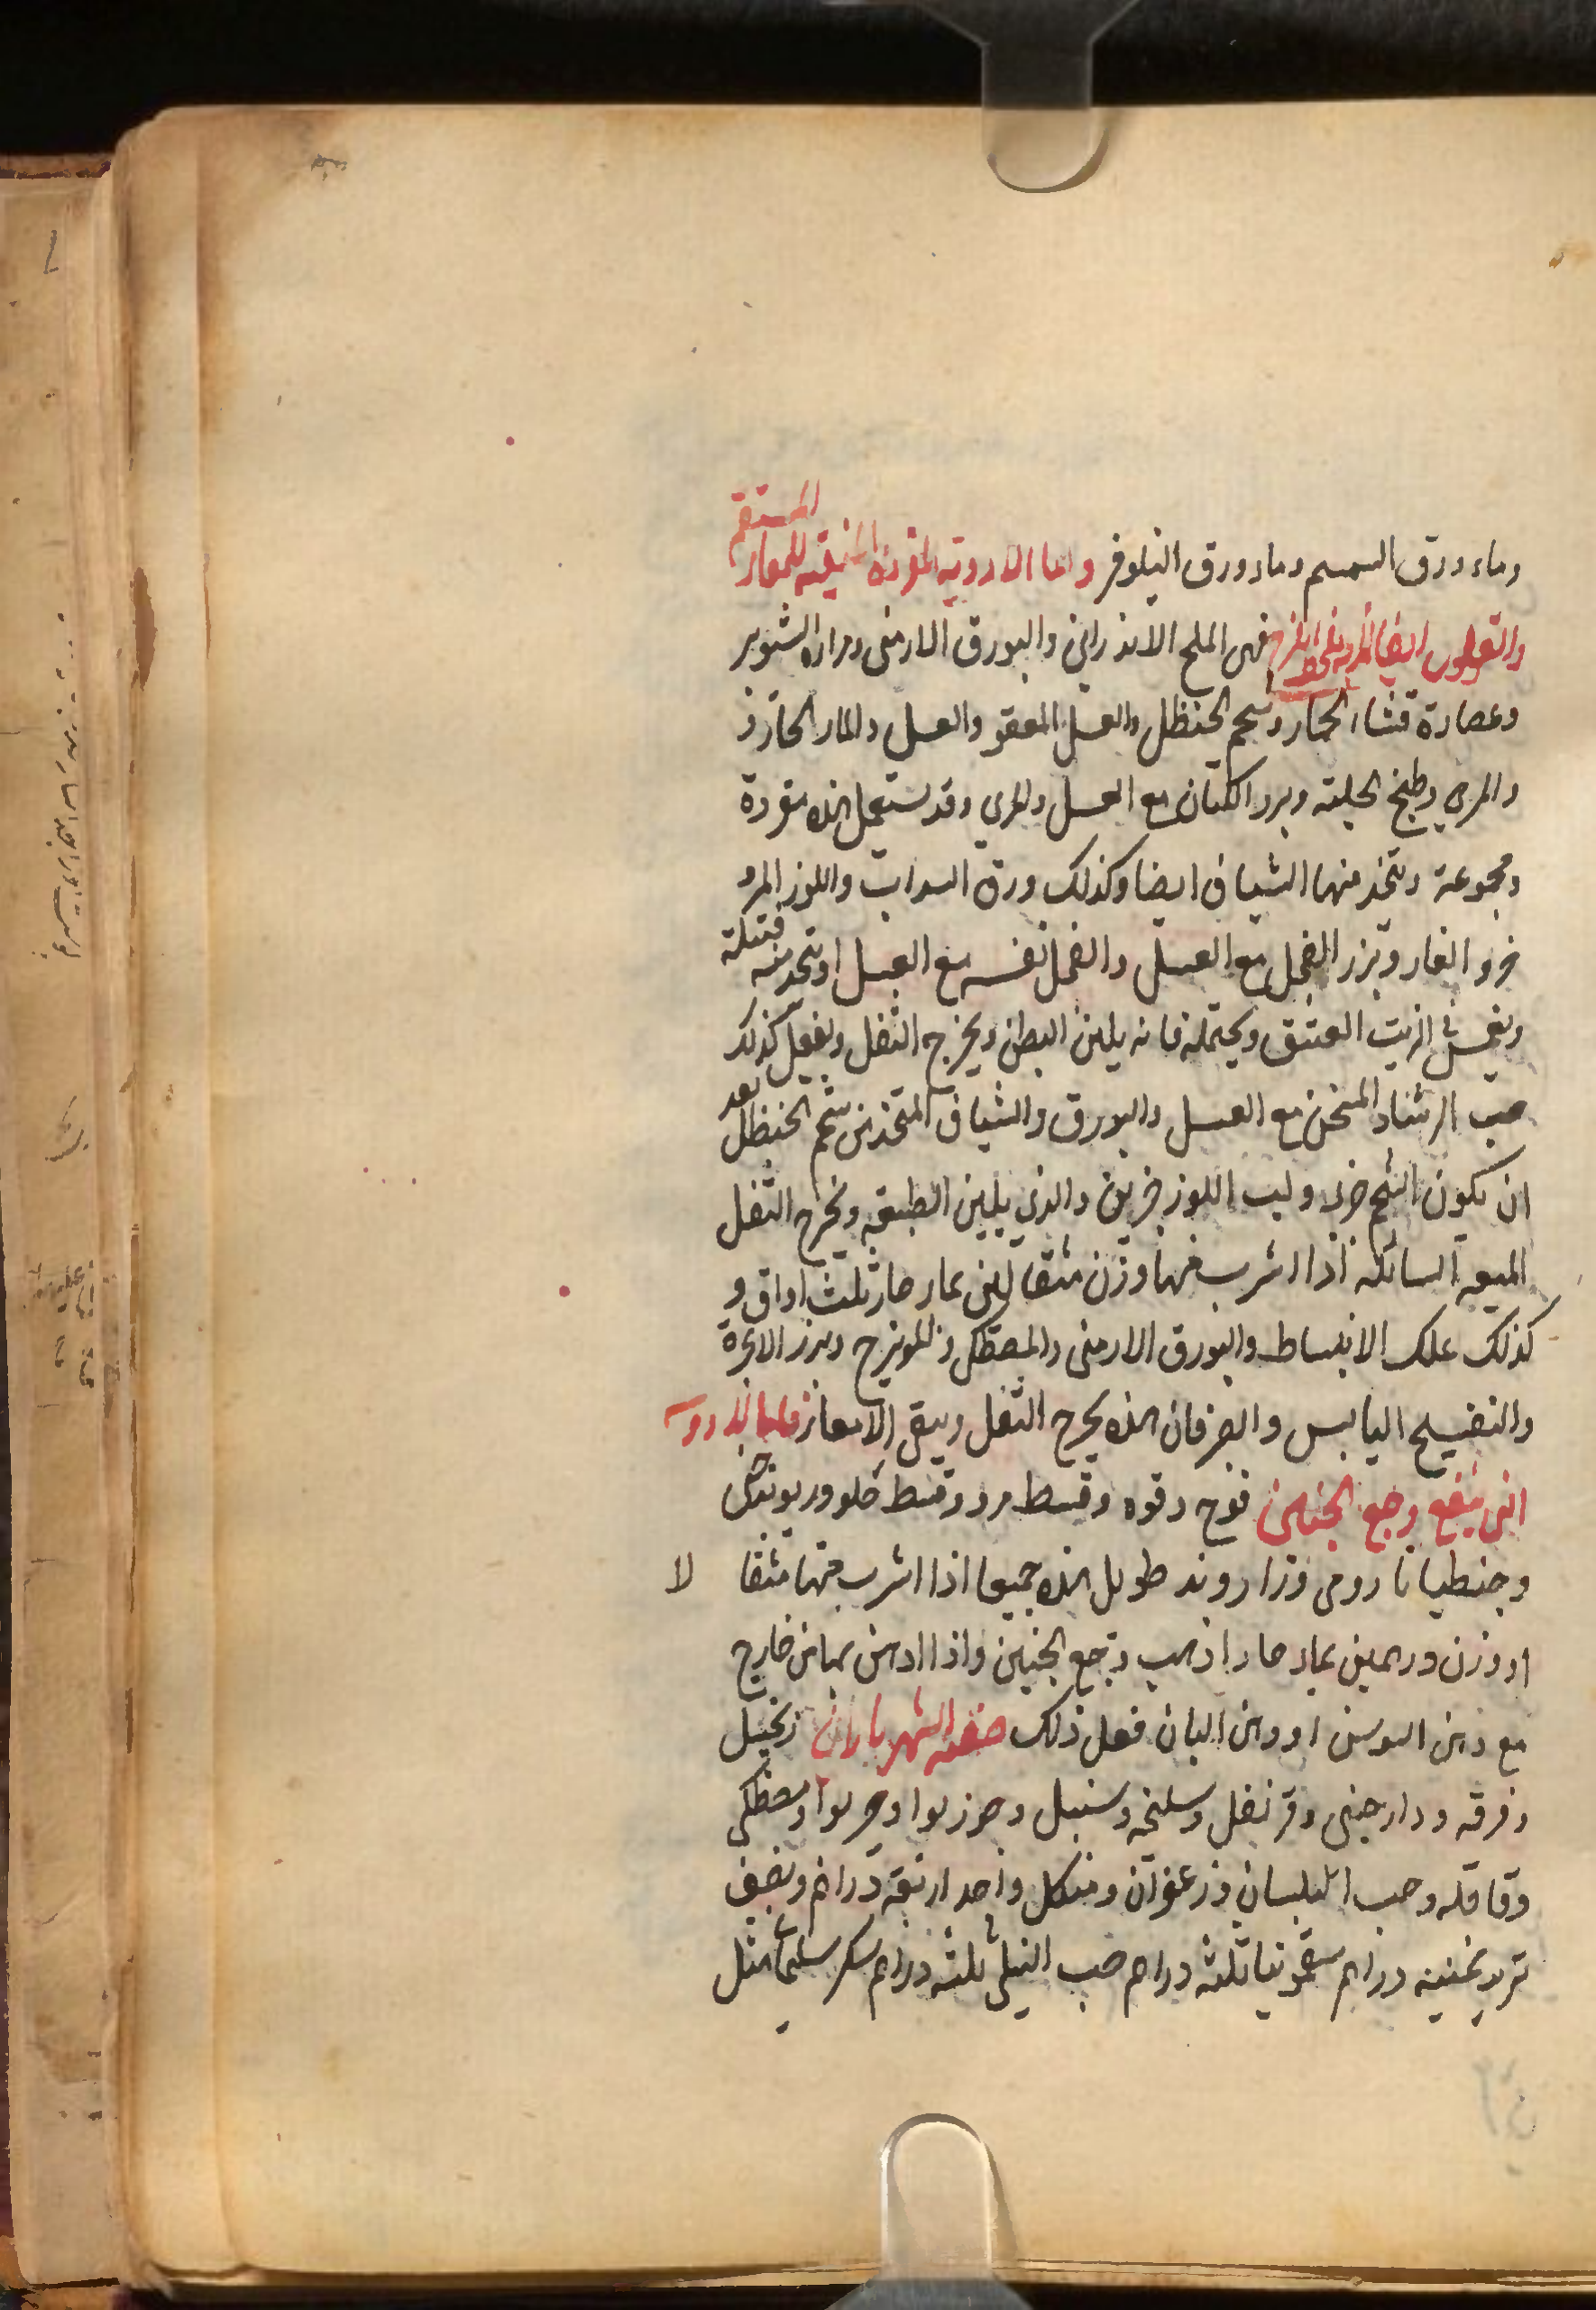 وماء ورق السمسم وماء ورق النيلوفر واما الادوية المفردة المنقيه للمعاء المستقيم
والقولون ايضا فهى الملح الاندرانى والبورق الارمنى ومرارة الثور
وعصارة قثاء الحمار وشحم الحنظل والعسل المعقود والعسل والماء الحار
والمرى وطبخ الحلبه وبزر الكتان مع العسل والمرى وقد يستعمل هذه مفردة
ومجموعة ويتخذ منها الشياف ايضا وكذلك ورق السداب واللوز المر و
خرو الفار وبزر الفجل مع العسل والفجل نفسه مع العسل او يتخذ منه فتيلة
ويغمس فى الزيت العتيق ويحتمله فانه يلين البطن ويخرج الثفل ويفعل كذلك
حب الرشاد المسخن مع العسل والبورق والشياف المتخذ من شحم الحنظل بعد
ان يكون الشحم جزء ولب اللوز جزئين والذى يلين الطبيعه ويخرج الثفل
الميعه السائله اذا اشرب منها وزن مثقالين بماء حار ثلث اواق و
كذلك علك الانباط والبورق الارمنى والمصطكى والمويزج وبزر الانجرة
والبنفسج اليابس والصرفان هذه يخرج الثفل وينقى الامعاء فاما الادويه
التى ينفع وجع الجنبين فوج وقوه وقسط مر وقسط حلو وريوند
وجنطيانا رومى وزراوند طويل هذه جميعا اذا اشرب منها مثقا لا
او وزن درهمين بماء حار اذهب وجع الجنبين واذا ادهن بها من خارج
مع دهن السوسن او دهن البان فعل ذلك صفه الشهرياران زنجبيل
وقرفه ودارچينى وقرنفل وسليخه وسنبل وجوزبوا وهيربوا ومصطكى
وقاقله وحب البلسان وزعفران من كل واحد اربعة دراهم ونصف
تربد ثمنيه دراهم سقمونيا ثلثه دراهم حب النيل ثلثه دراهم سكر سليمانى مثل